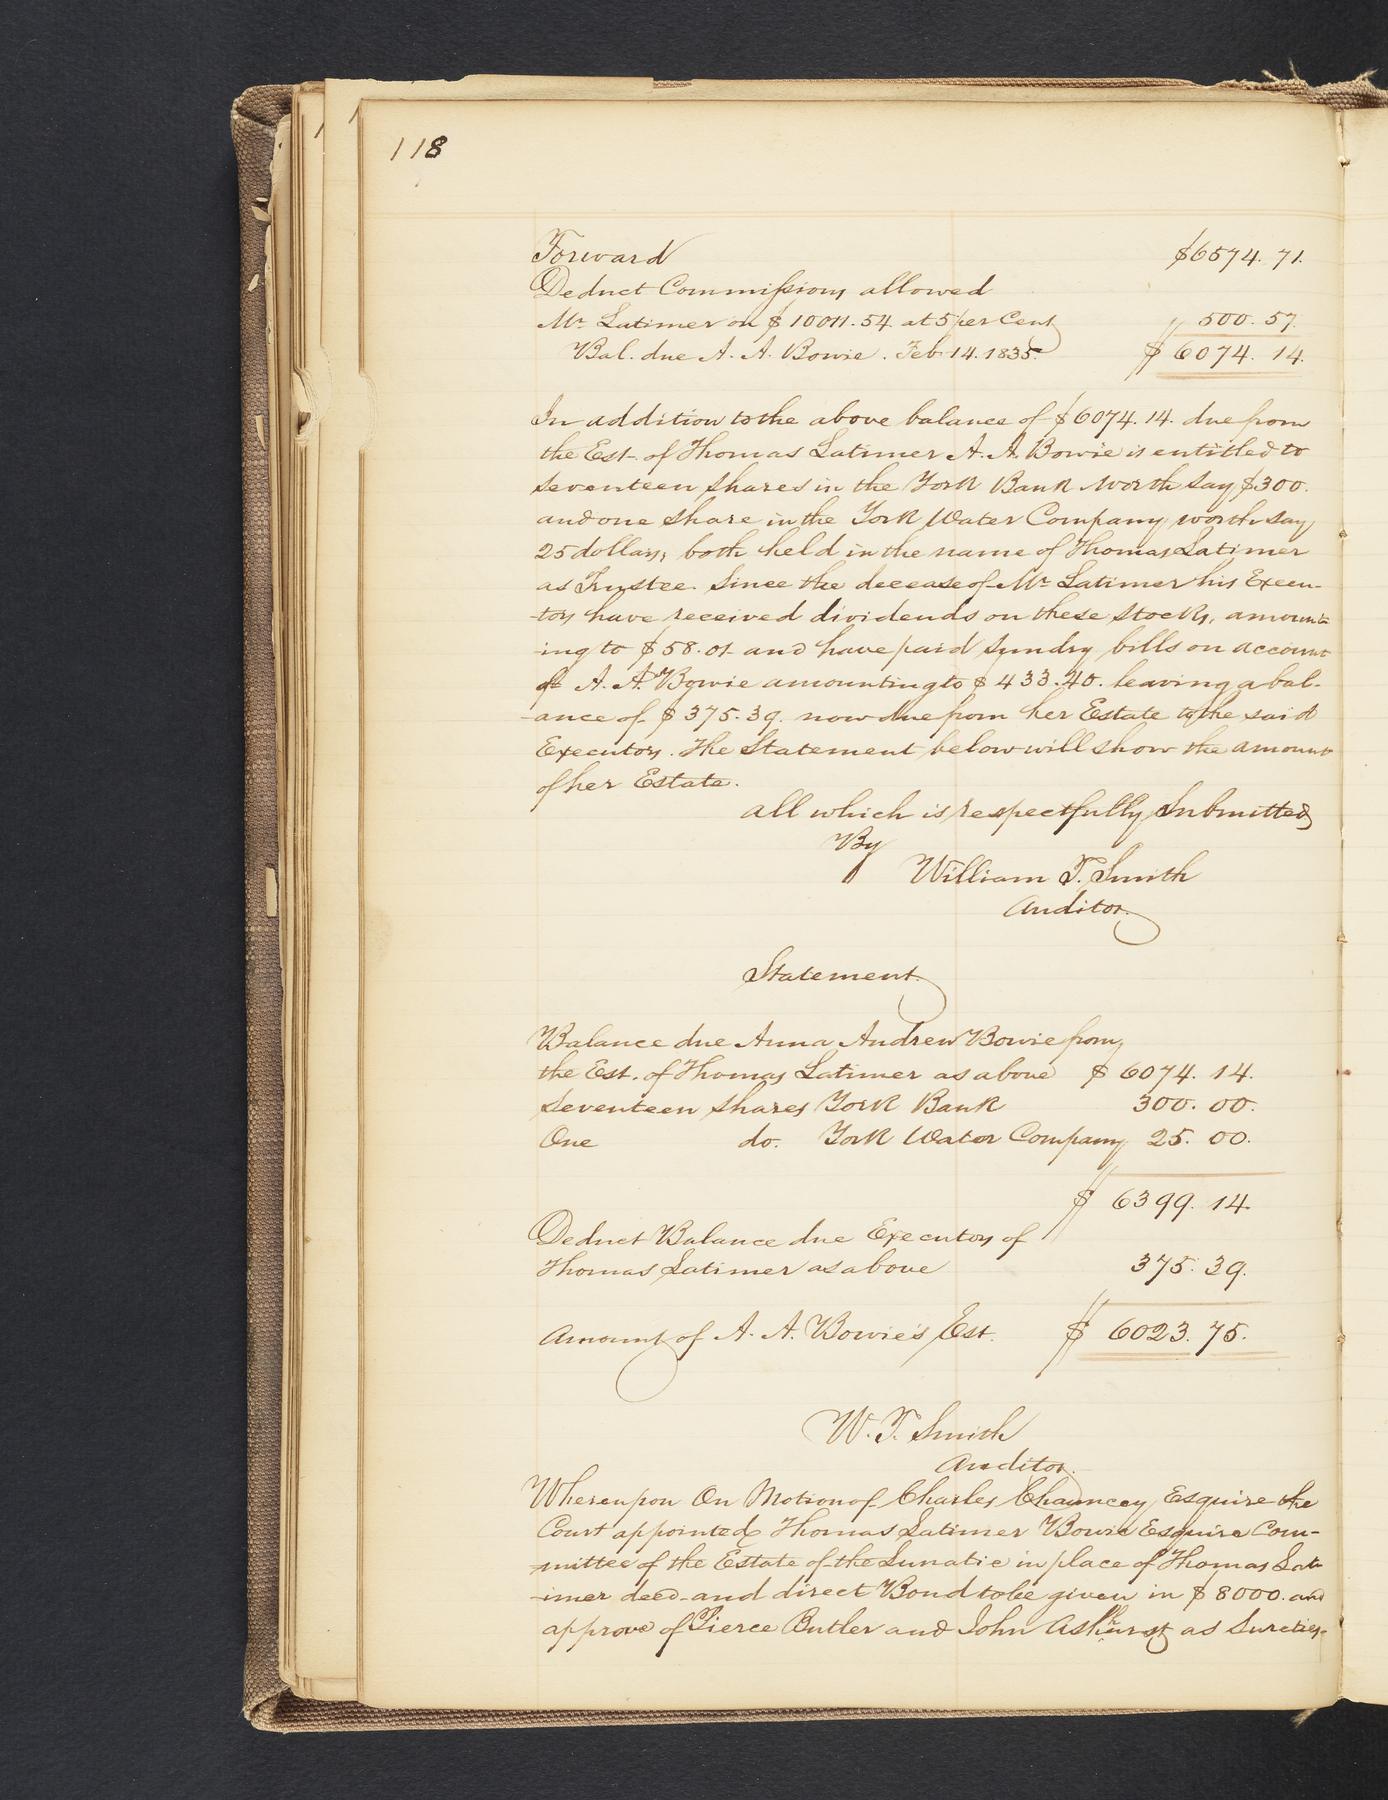 118
Forward $6574. 71.
Deduct Commissions allowed
Mr. Latimer on $10011.54. at 5 per Cent 500. 57.
Bal. due A. A. Bowie. Feb. 14. 1835. $6074. 14.
In addition to the above balance of $6074. 14. due from
the Est. of Thomas Latimer A. A. Bowie is entitled to
seventeen shares in the York Bank worth say $300.
and one share in the York Water Company worth say
25 dollars, both held in the name of Thomas Latimer
as Trustee. Since the decease of Mr. Latimer his Execu-
-tors have received dividends on these stocks, amount-
-ing to $58.01 and have paid sundry bills on account
of A. A. Bowie amounting to $433.40. leaving a bal-
-ance of $375.39. now due from her Estate to the said
Executors. The Statement below will show the amount
of her Estate.
all which is respectfully Submitted
By
William T. Smith
Auditor.
Statement
Balance due Anna Andrew Bowie from
the Est. of Thomas Latimer as above $6074. 14.
Seventeen Shares York Bank 300. 00.
One do. York Water Company 25. 00.
$ 6399. 14.
Deduct Balance due Executors of
Thomas Latimer as above 375. 39.
Amount of A. A. Bowie's Est. $ 6023. 75.
W. T. Smith
Auditor.
Whereupon On Motion of Charles Chauncey Esquire the
Court appointed Thomas Latimer Bowie Esquire Com-
-mittee of the Estate of the Lunatic in place of Thomas Lat-
-imer decd. and direct Bond to be given in $8000. and
approve of Pierce Butler and John Ashhurst as Sureties-